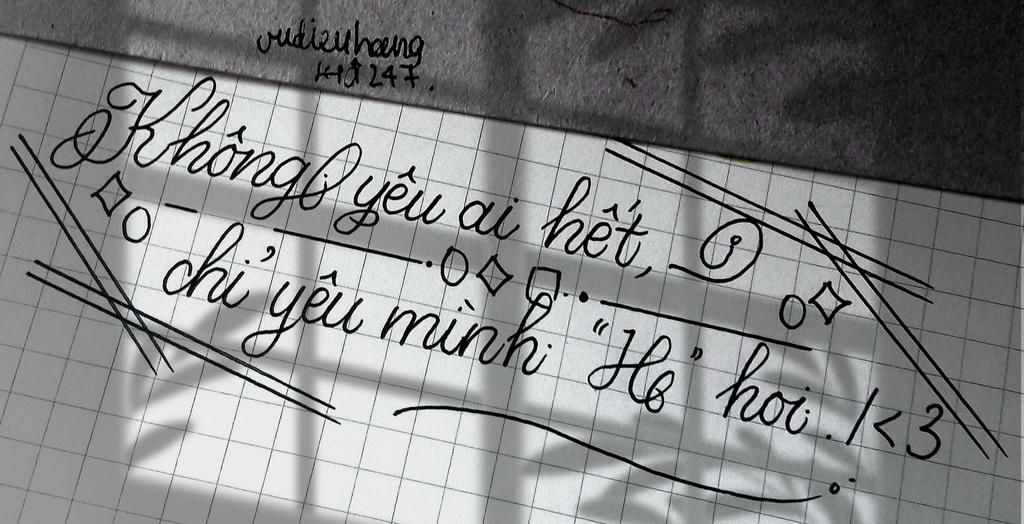 vudieuhoang
247.
Không yêu ai hết,
chỉ yêu mình "H" hoi. / <3